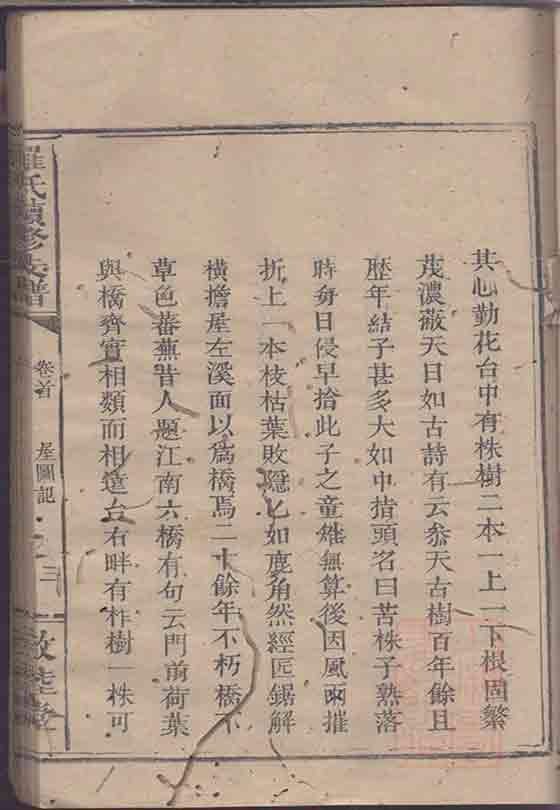 其心勤花台中有株樹二本一上一下根固繁
茂濃蔽天日如古詩有云叅天古樹百年餘且
歷年結子甚多大如中指頭名曰苦株子熟落
時每日侵早拾此子之童雉無算後因風雨摧
折上一本枝枯葉敗隱匕如鹿角然經匠鋸解
橫擔屋左溪面以爲橋焉二十餘年不朽橋下
草色蕃蕪昔人題江南六橋有句云門前荷葉
與橋齊實相類而相遠台右畔有柞樹一株可
羅氏續修族譜
卷首
屋圖記
三
敦睦堂